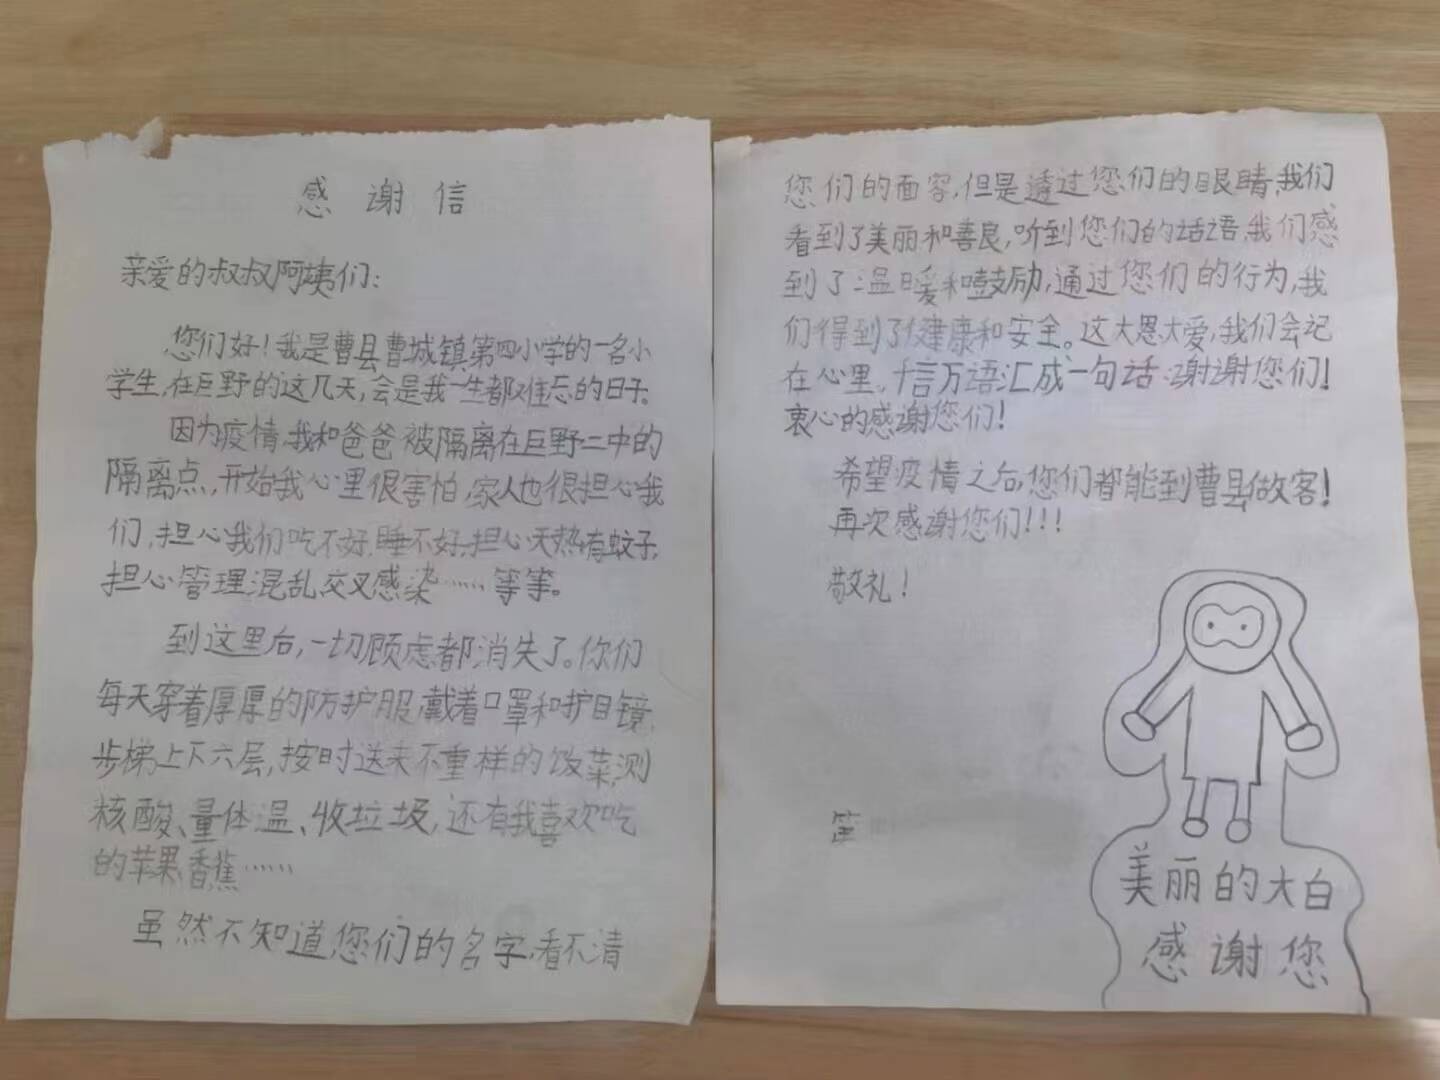 感谢信
亲爱的叔叔阿姨们:
您们好!我是曹县曹城镇第四小学的一名小
学生,在巨野的这几天,会是我一生都难忘的日子。
因为疫情,我和爸爸被隔离在巨野二中的
隔离点,开始我心里很害怕,家人也很担心我
们,担心我们吃不好,睡不好,担心天热有蚊子,
担心管理混乱交叉感染……等等。
到这里后,一切顾虑都消失了。你们
每天穿着厚厚的防护服,戴着口罩和护目镜,
步梯上下六层,按时送来不重样的饭菜,测
核酸、量体温、收垃圾,还有我喜欢吃
的苹果,香蕉……
虽然不知道您们的名字,看不清
您们的面容,但是透过您们的眼睛,我们
看到了美丽和善良,听到您们的话语,我们感
到了温暖和鼓励,通过您们的行为,我
们得到了健康和安全。这大恩大爱,我们会记
在心里。千言万语汇成一句话:谢谢您们!
衷心的感谢您们!
希望疫情之后,您们都能到曹县做客!
再次感谢您们!!!
敬礼!
美丽的大白
感谢您